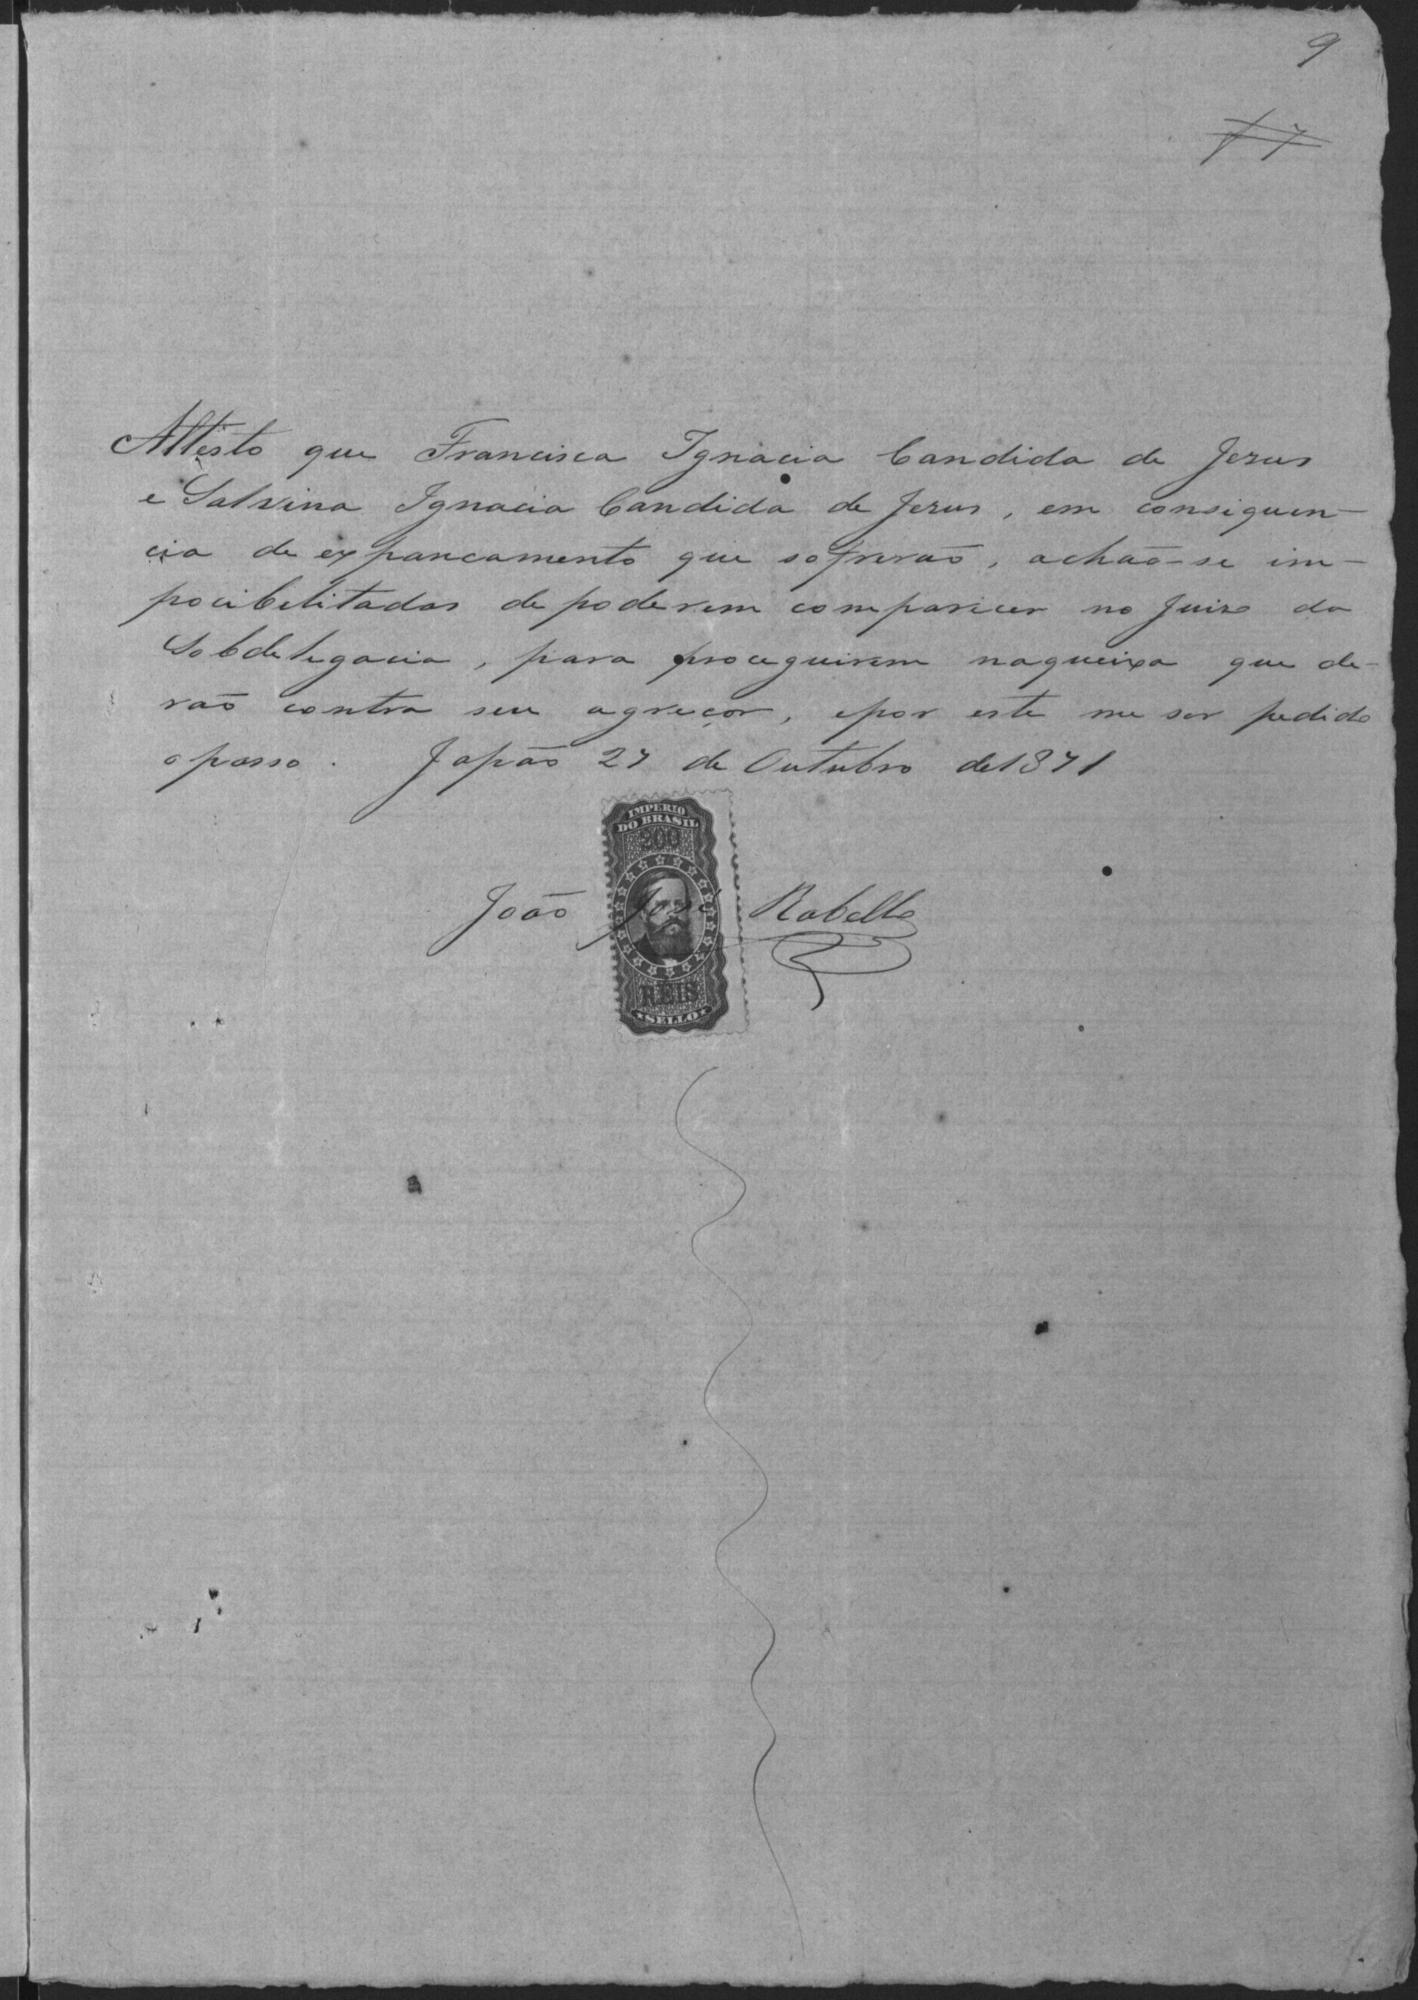 9
17
Attesto que Francisca Ignacia Candida de Jezus
e Salvina Ignacia Candida de Jezus, em consiquen-
cia de expancamento que sofrerão, achão-se im-
pocibelitadas de poderem comparicer no Juizo da
Sobdelegacia, para proceguirem naqueixa que de-
rão contra seu agreçor, epor este me ser pedido
o passo. Japão 27 de Outubro de 1871
IMPERIO
DO BRASIL
200
João José Rabello
REIS
SELLO